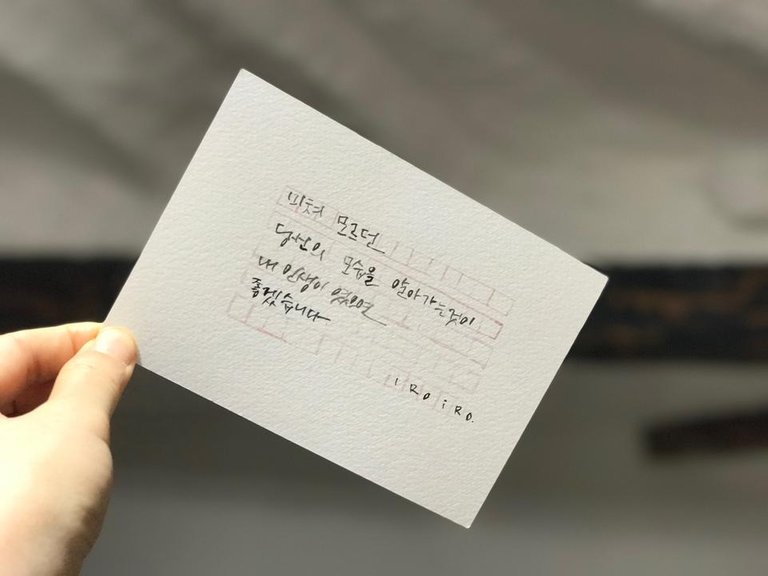 미쳐 모르던
당신의 모습을 알아가는것이
내 인생이 였으면
좋겠습니다
IROiRO.